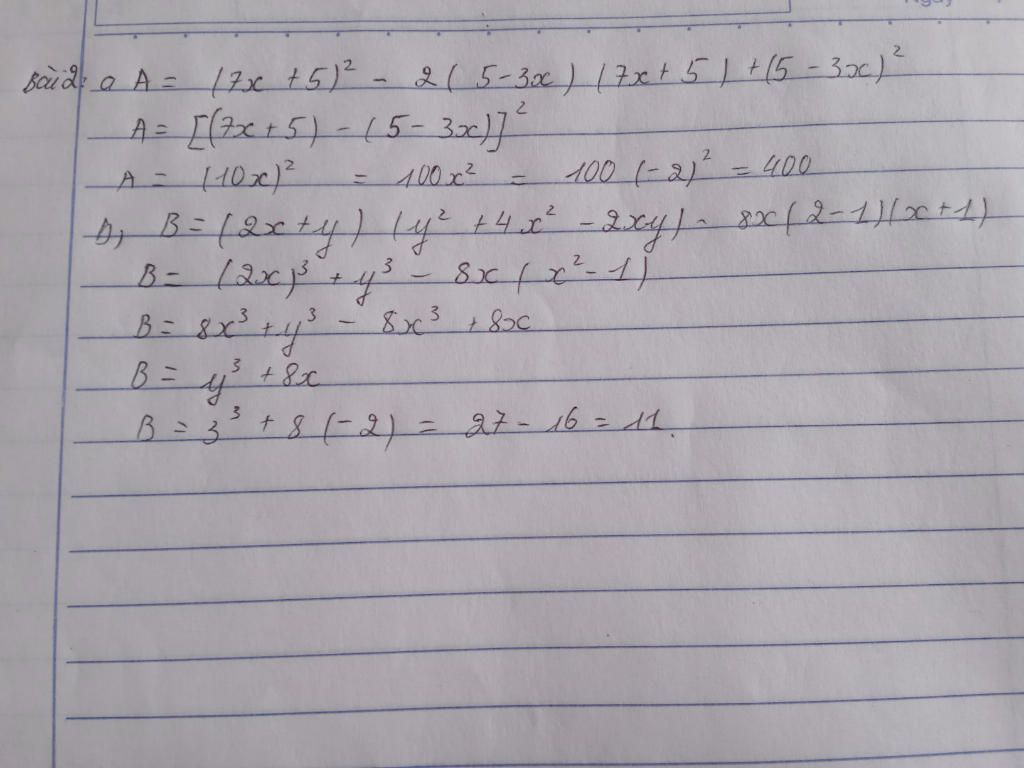 Bài 2: a A = (7x + 5)² - 2(5 - 3x)(7x + 5) + (5 - 3x)²
A = [(7x + 5) - (5 - 3x)]²
A = (10x)² = 100x² = 100(-2)² = 400
b, B = (2x + y)(y² + 4x² - 2xy) - 8x(2 - 1)(x + 1)
B = (2x)³ + y³ - 8x(x² - 1)
B = 8x³ + y³ - 8x³ + 8x
B = y³ + 8x
B = 3³ + 8(-2) = 27 - 16 = 11.